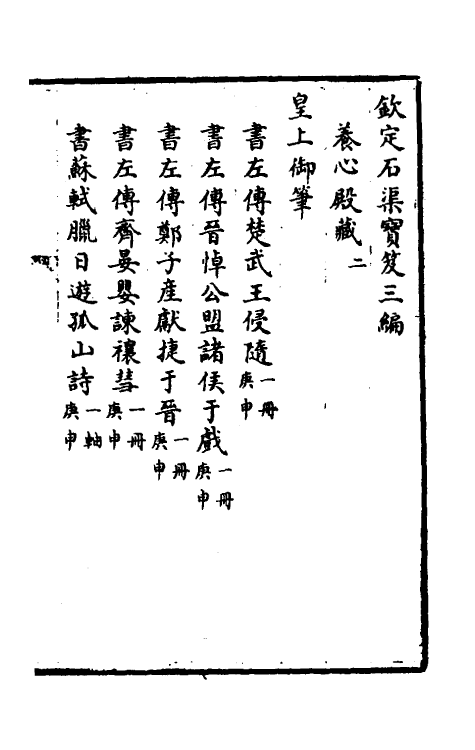 欽定石渠寶笈三編
養心殿藏二
皇上御筆
書左傳楚武王侵隨一冊庚申
書左傳晉悼公盟諸侯于戲一冊庚申
書左傳鄭子產獻捷于晉一冊庚申
書左傳齊晏嬰諫禳彗一冊庚申
書蘇軾臘日遊孤山詩一軸庚申